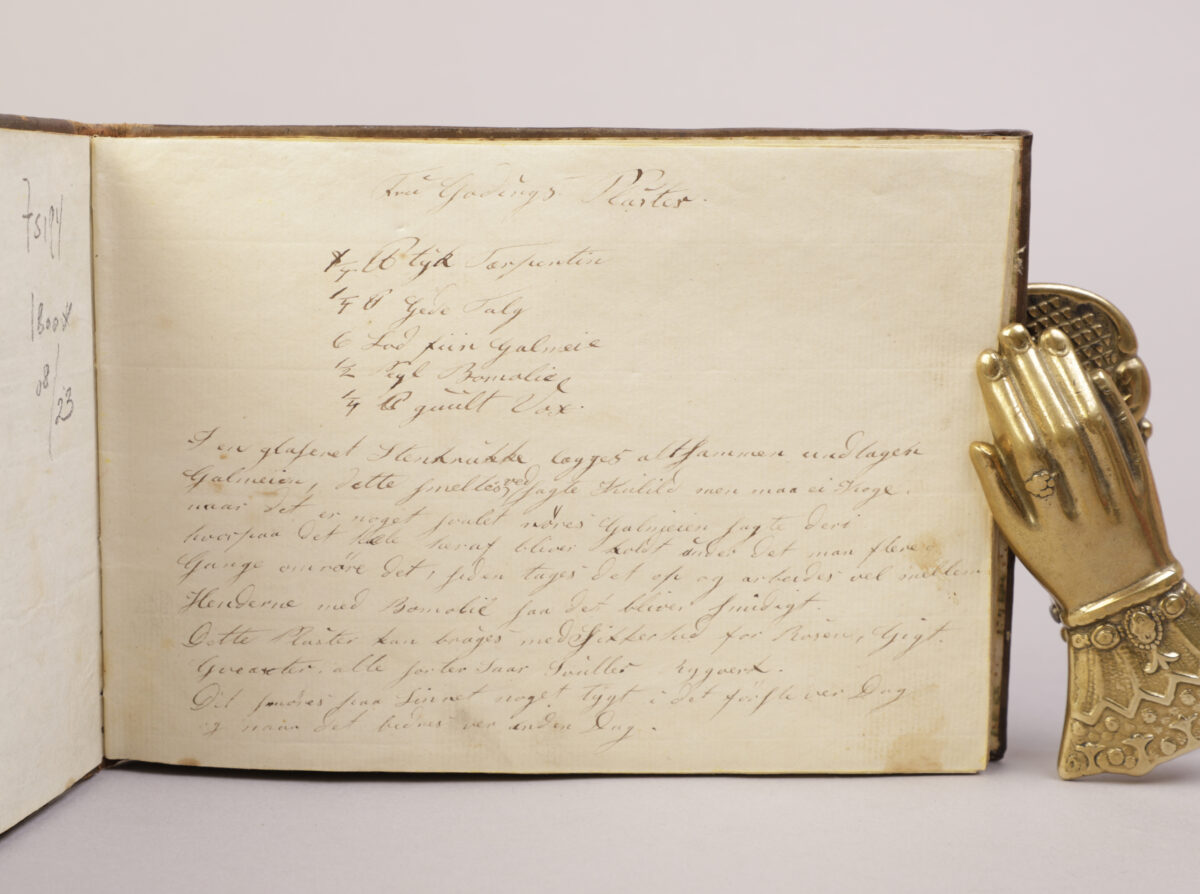 Frü Godings Plaster.
1/4 ℔ tÿk Terpentin
1/4 ℔ Gede Talg
6 Lod fiin Galmeie
1/2 Pegl Bomolie
1/4 ℔ guult Vox.
I en glaseret Stenkrukke lægges altsammen undtagen
Galmeien, dette smeltes ved sagte Kulild men maa ei Koge.
naar det er noget svalet röres Galmeien sagte deri
hvorpaa det hele heraf bliver koldt under det man flere
Gange omröre det, siden tages det op og arbeides vel mellem
Henderne med Bomolie saa det bliver smidigt.
Dette Plaster kan bruges med Sikkerhed for Rosen, Gigt.
alle sorter Saar Svulster Rygverk.
Det smöres paa Linnet noget tygt i det förste ver Dag
og naar det bedres ver anden Dag.
1800x
08/23